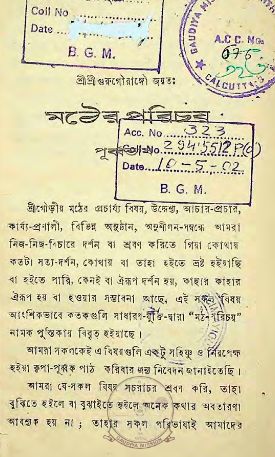 Coll No
Date
B. G. M.
GAUDIYA MISS
A.C.C. No
CALCUTTA
শ্রীশ্রীগুরুগৌরাঙ্গৌ জয়তঃ
মঠের পরিচয়
Acc. No 323
Date 10-5-02
B. G. M.
শ্রীগৌড়ীয় মঠের প্রচার্য্য বিষয়, উদ্দেশ্য, আচার-প্রচার,
কার্য্য-প্রণালী, বিভিন্ন অনুষ্ঠান, অনুশীলন-সম্বন্ধে আমরা
নিজ-নিজ-বিচারে দর্শন বা শ্রবণ করিতে গিয়া কোথায়
কতটা সত্য-দর্শন, কোথায় বা তাহা হইতে ভ্রষ্ট হইয়াছি
বা হইতে পারি, কেনই বা ঐরূপ দর্শন হয়, কাহার কাহার
ঐরূপ হয় বা হওয়ার সম্ভাবনা আছে, এই সকল বিষয়
আংশিকভাবে কতকগুলি সাধারণ-যুক্তি-দ্বারা "মঠ-পরিচয়"
নামক পুস্তিকায় বিবৃত হইয়াছে।
আমরা সকলকেই এ বিষয়গুলি একটু সহিষ্ণু ও নিরপেক্ষ
হইয়া কৃপা-পূর্ব্বক পাঠ করিবার জন্য নিবেদন জানাইতেছি।
আমরা যে-সকল বিষয় সচরাচর শ্রবণ করি, তাহা
বুঝিতে হইলে বা বুঝাইতে হইলে অনেক কথার অবতারণা
আবশ্যক হয় না; তাহার সকল পরিভাষাই আমাদের